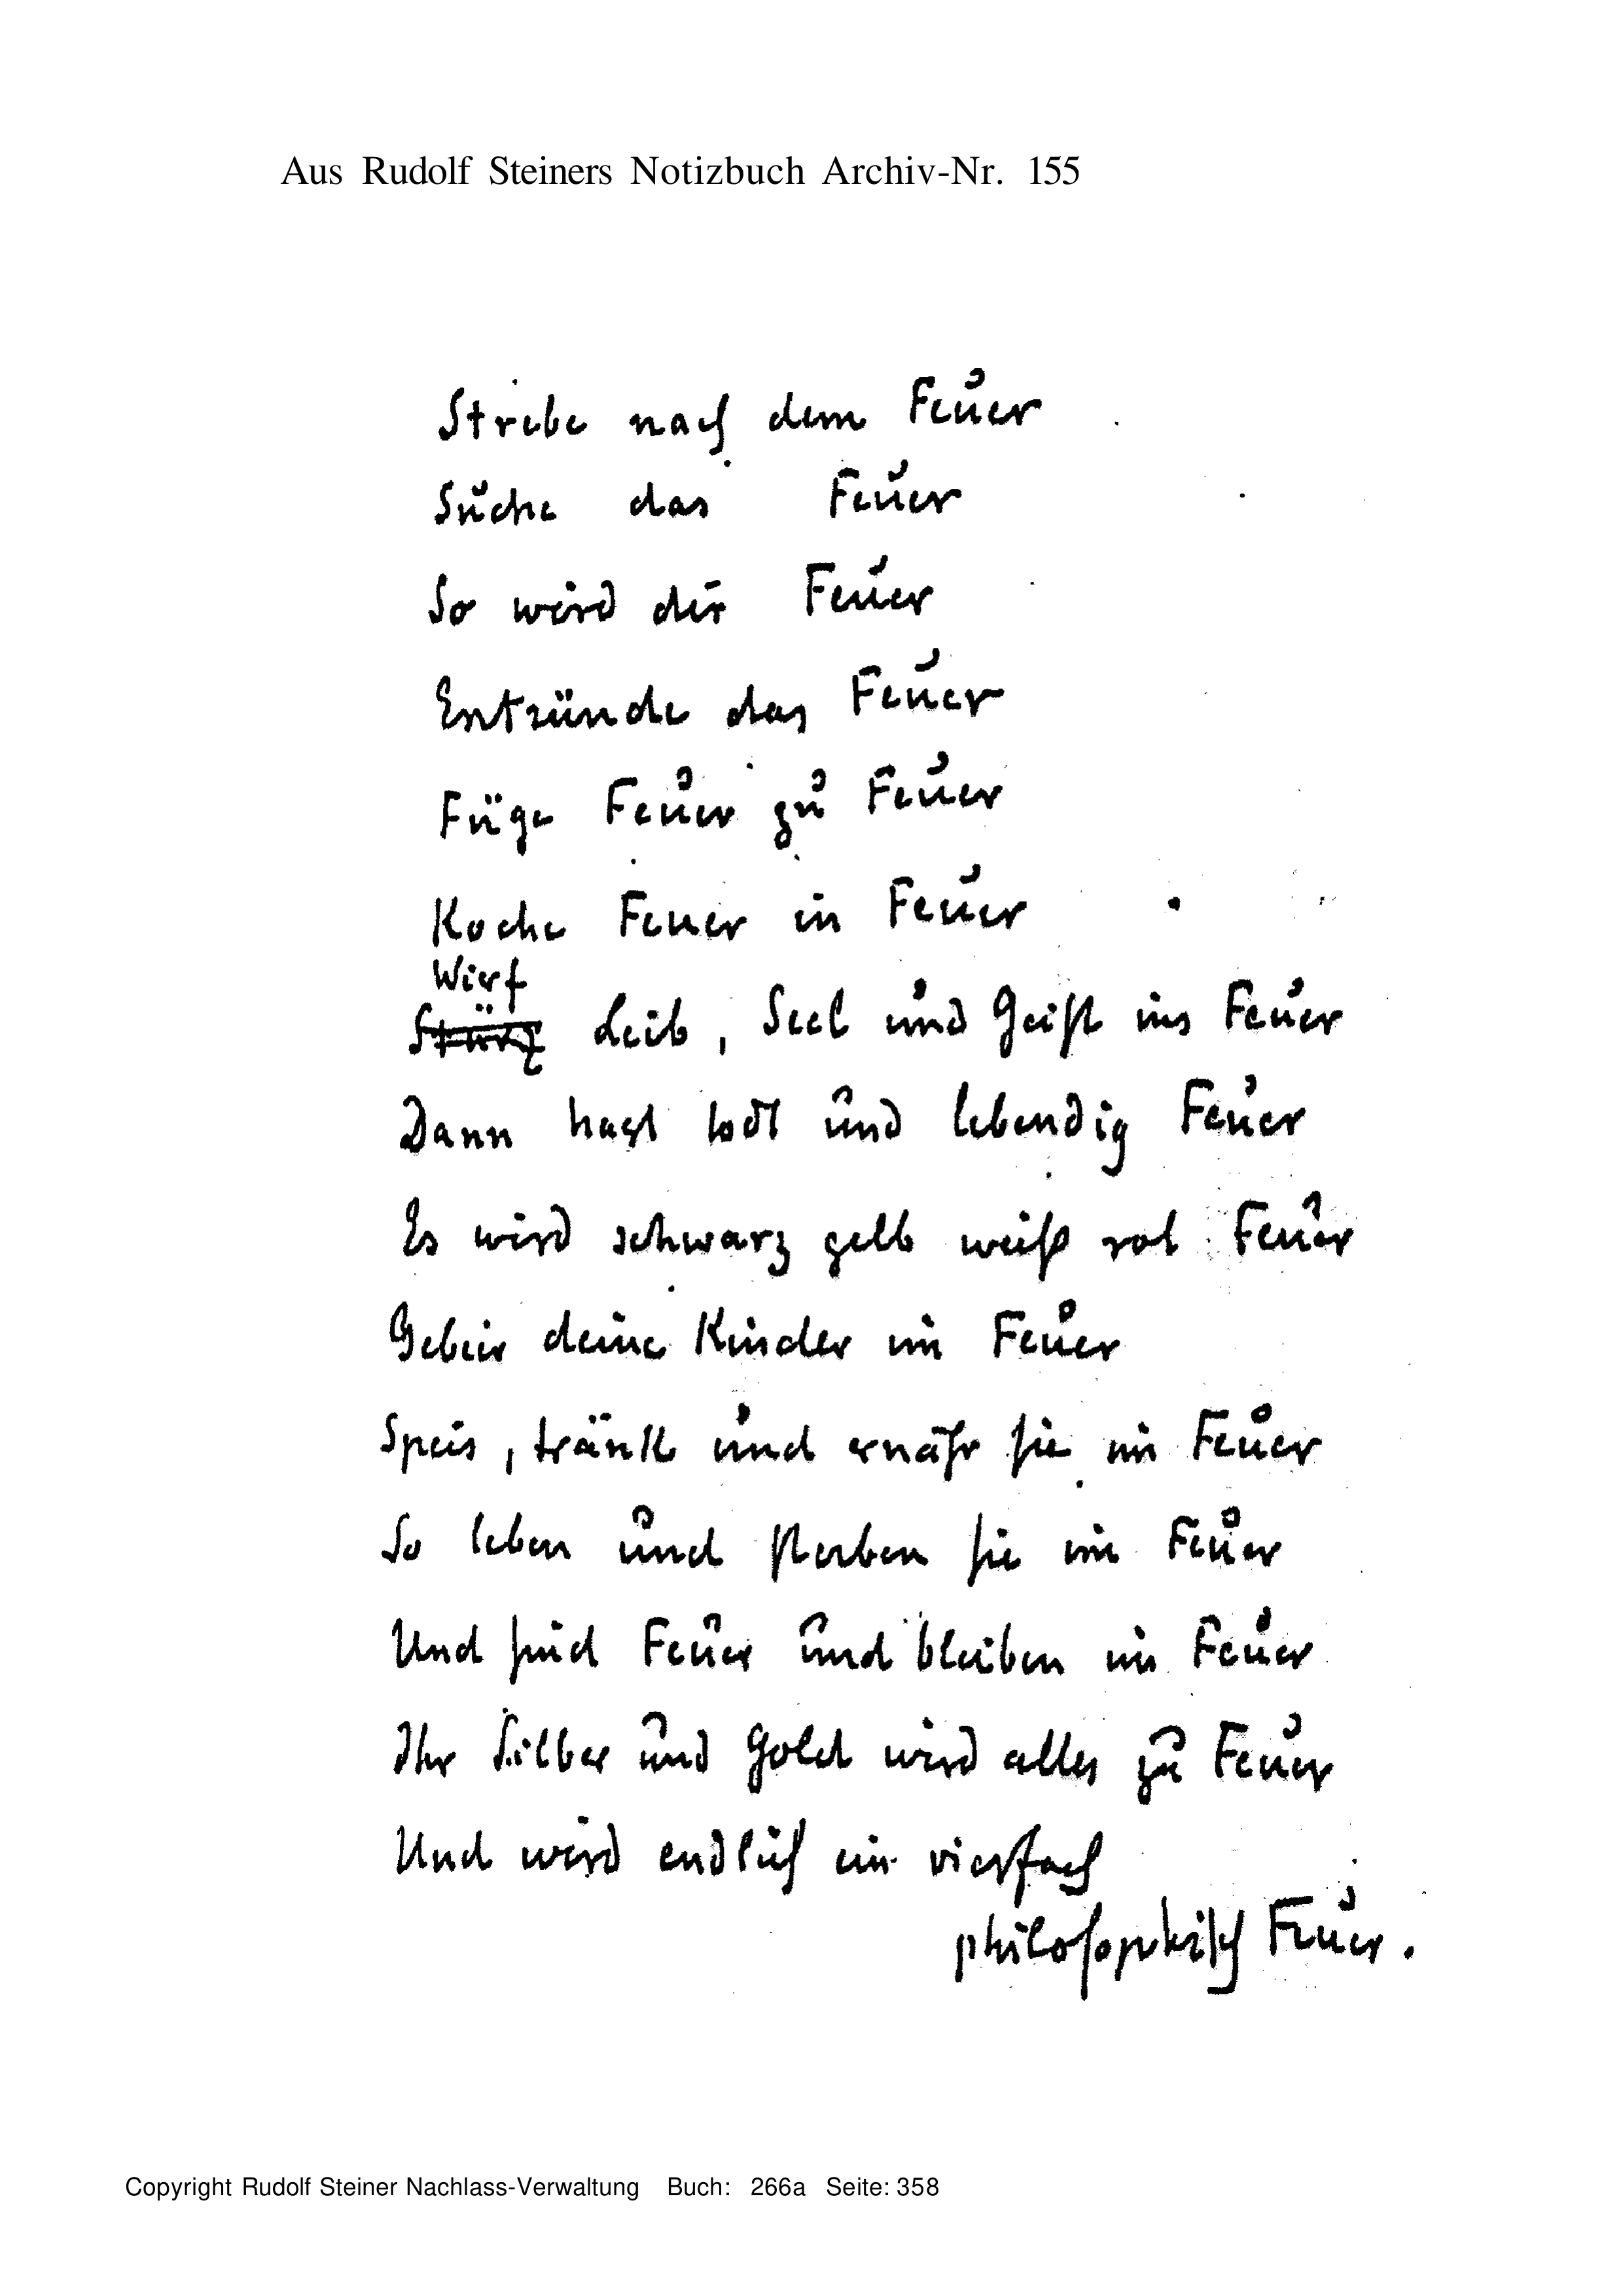 Aus Rudolf Steiners Notizbuch Archiv-Nr. 155
Strebe nach dem Feuer
Suche das Feuer
So wird dir Feuer
Entzünde das Feuer
Füge Feuer zu Feuer
Koche Feuer in Feuer
Wirf
Stürz Leib, Seel und Geist ins Feuer
Dann hast todt und lebendig Feuer
Es wird schwarz gelb weiß rot Feuer
Gebier deine Kinder im Feuer
Speis, tränk und ernähr sie im Feuer
So leben und sterben sie im Feuer
Und sind Feuer und bleiben im Feuer
Ihr Silber und Gold wird alles zu Feuer
Und wird endlich ein vierfach
philosophisch Feuer.
Copyright Rudolf Steiner Nachlass-Verwaltung Buch: 266a Seite: 358